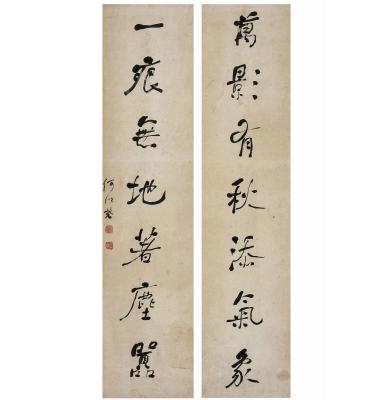 萬影有秋添氣象
一痕無地著塵囂
何紹基